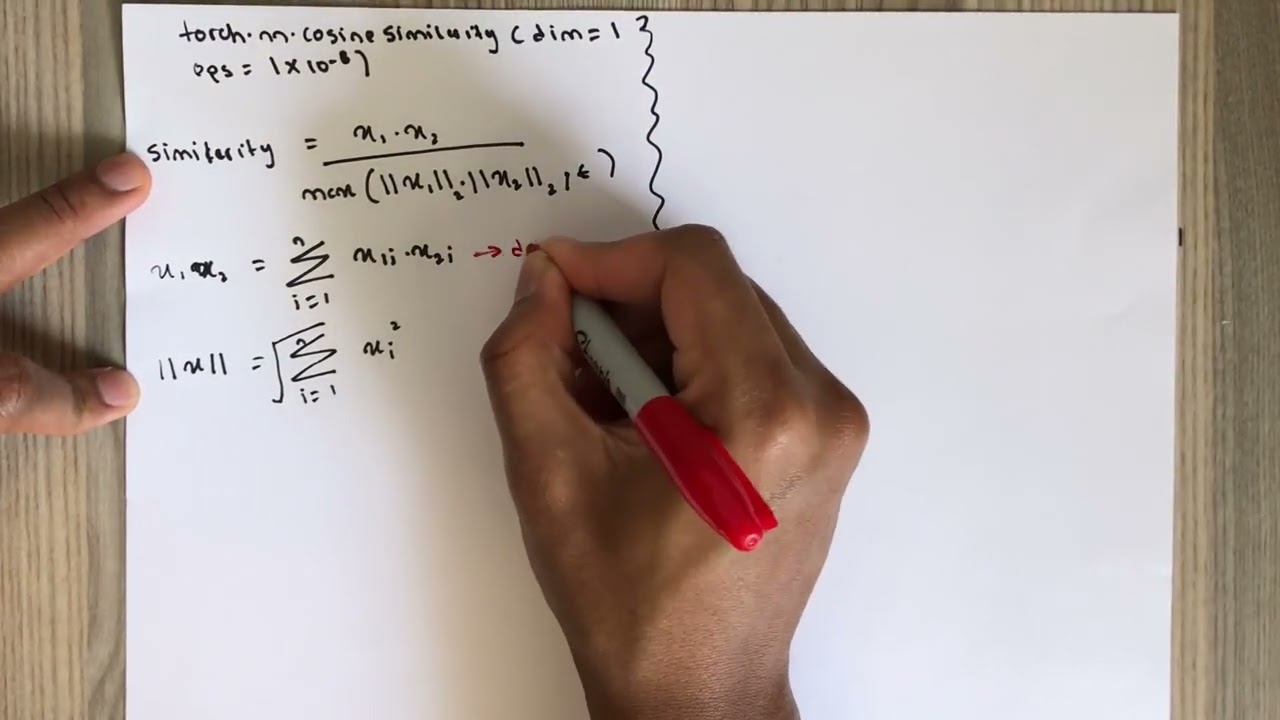 torch.n.cosine similarity (dim=1
eps = 1×10⁻⁸)
similarity = x₁·x₂ / max(||x₁||₂·||x₂||₂, ε)
x₁·x₂ = Σ x₁ᵢ·x₂ᵢ → d
n
i=1
||x|| = √Σ xᵢ²
n
i=1